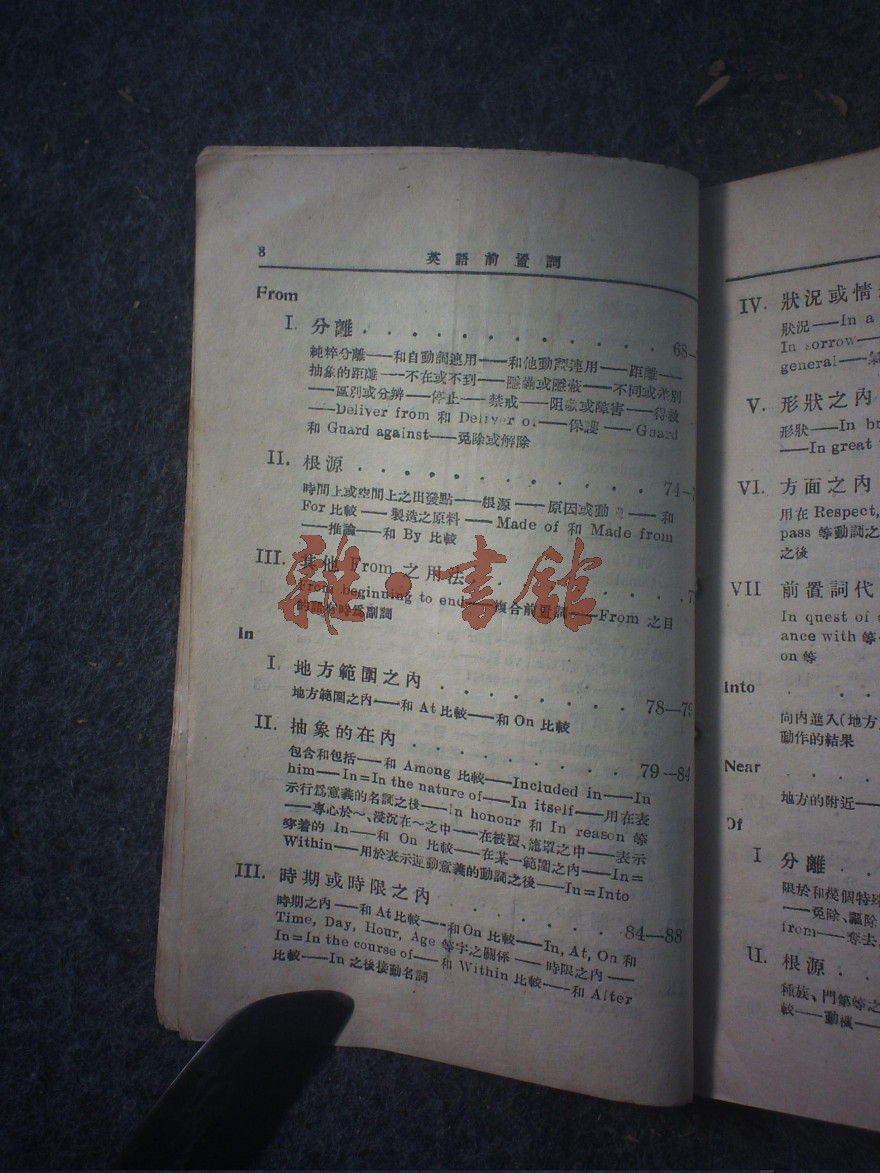 8
英語前置詞
From
I. 分離 . . . . . . . . . . . . 68—
純粹分離——和自動詞連用——和他動詞連用——距離——
抽象的距離——不在或不到——隱瞞或隱蔽——不同或差別
——區別或分辨——停止——禁戒——阻止或障害——得救
——Deliver from 和 Deliver of——保護——Guard
和 Guard against——免除或解除
II. 根源 . . . . . . . . . . . . 74—
時間上或空間上之出發點——根源——原因或動——和
For 比較——製造之原料——Made of 和 Made from
——推論——和 By 比較
III. 其他 From 之用法 . . . . . . 7
From beginning to end——複合前置詞——From 之目
的語有時爲副詞
In
I. 地方範圍之內 . . . . . . 78—79
地方範圍之內——和 At 比較——和 On 比較
II. 抽象的在內 . . . . . . . . 79—84
包含和包括——和 Among 比較——Included in——In
him——In=In the nature of——In itself——用在表
示行爲意義的名詞之後——In honour 和 In reason 等
——專心於～、浸沉在～之中——在被覆、籠罩之中——表示
穿着的 In——和 On 比較——在某一範圍之內——In=
Within——用於表示運動意義的動詞之後——In=Into
III. 時期或時限之內 . . . . . . . 84—88
時期之內——和 At 比較——和 On 比較——In, At, On 和
Time, Day, Hour, Age 等字之關係——時限之內——
In=In the course of——和 Within 比較——和 After
比較——In 之後接動名詞
雜·書館
IV. 狀況或情
狀況——In a
In sorrow——
general——
V. 形狀之內
形狀——In
——In great
VI. 方面之內
用在 Respect,
pass 等動詞之
之後
VII 前置詞代
In quest of
ance with 等
on 等
Into . . . . .
向內進入(地方
動作的結果
Near . . . . .
地方的附近——
Of
I 分離 . .
限於和幾個特殊
——免除、驅除
from——奪去
II. 根源 . .
種族、門第等之
較——動機——